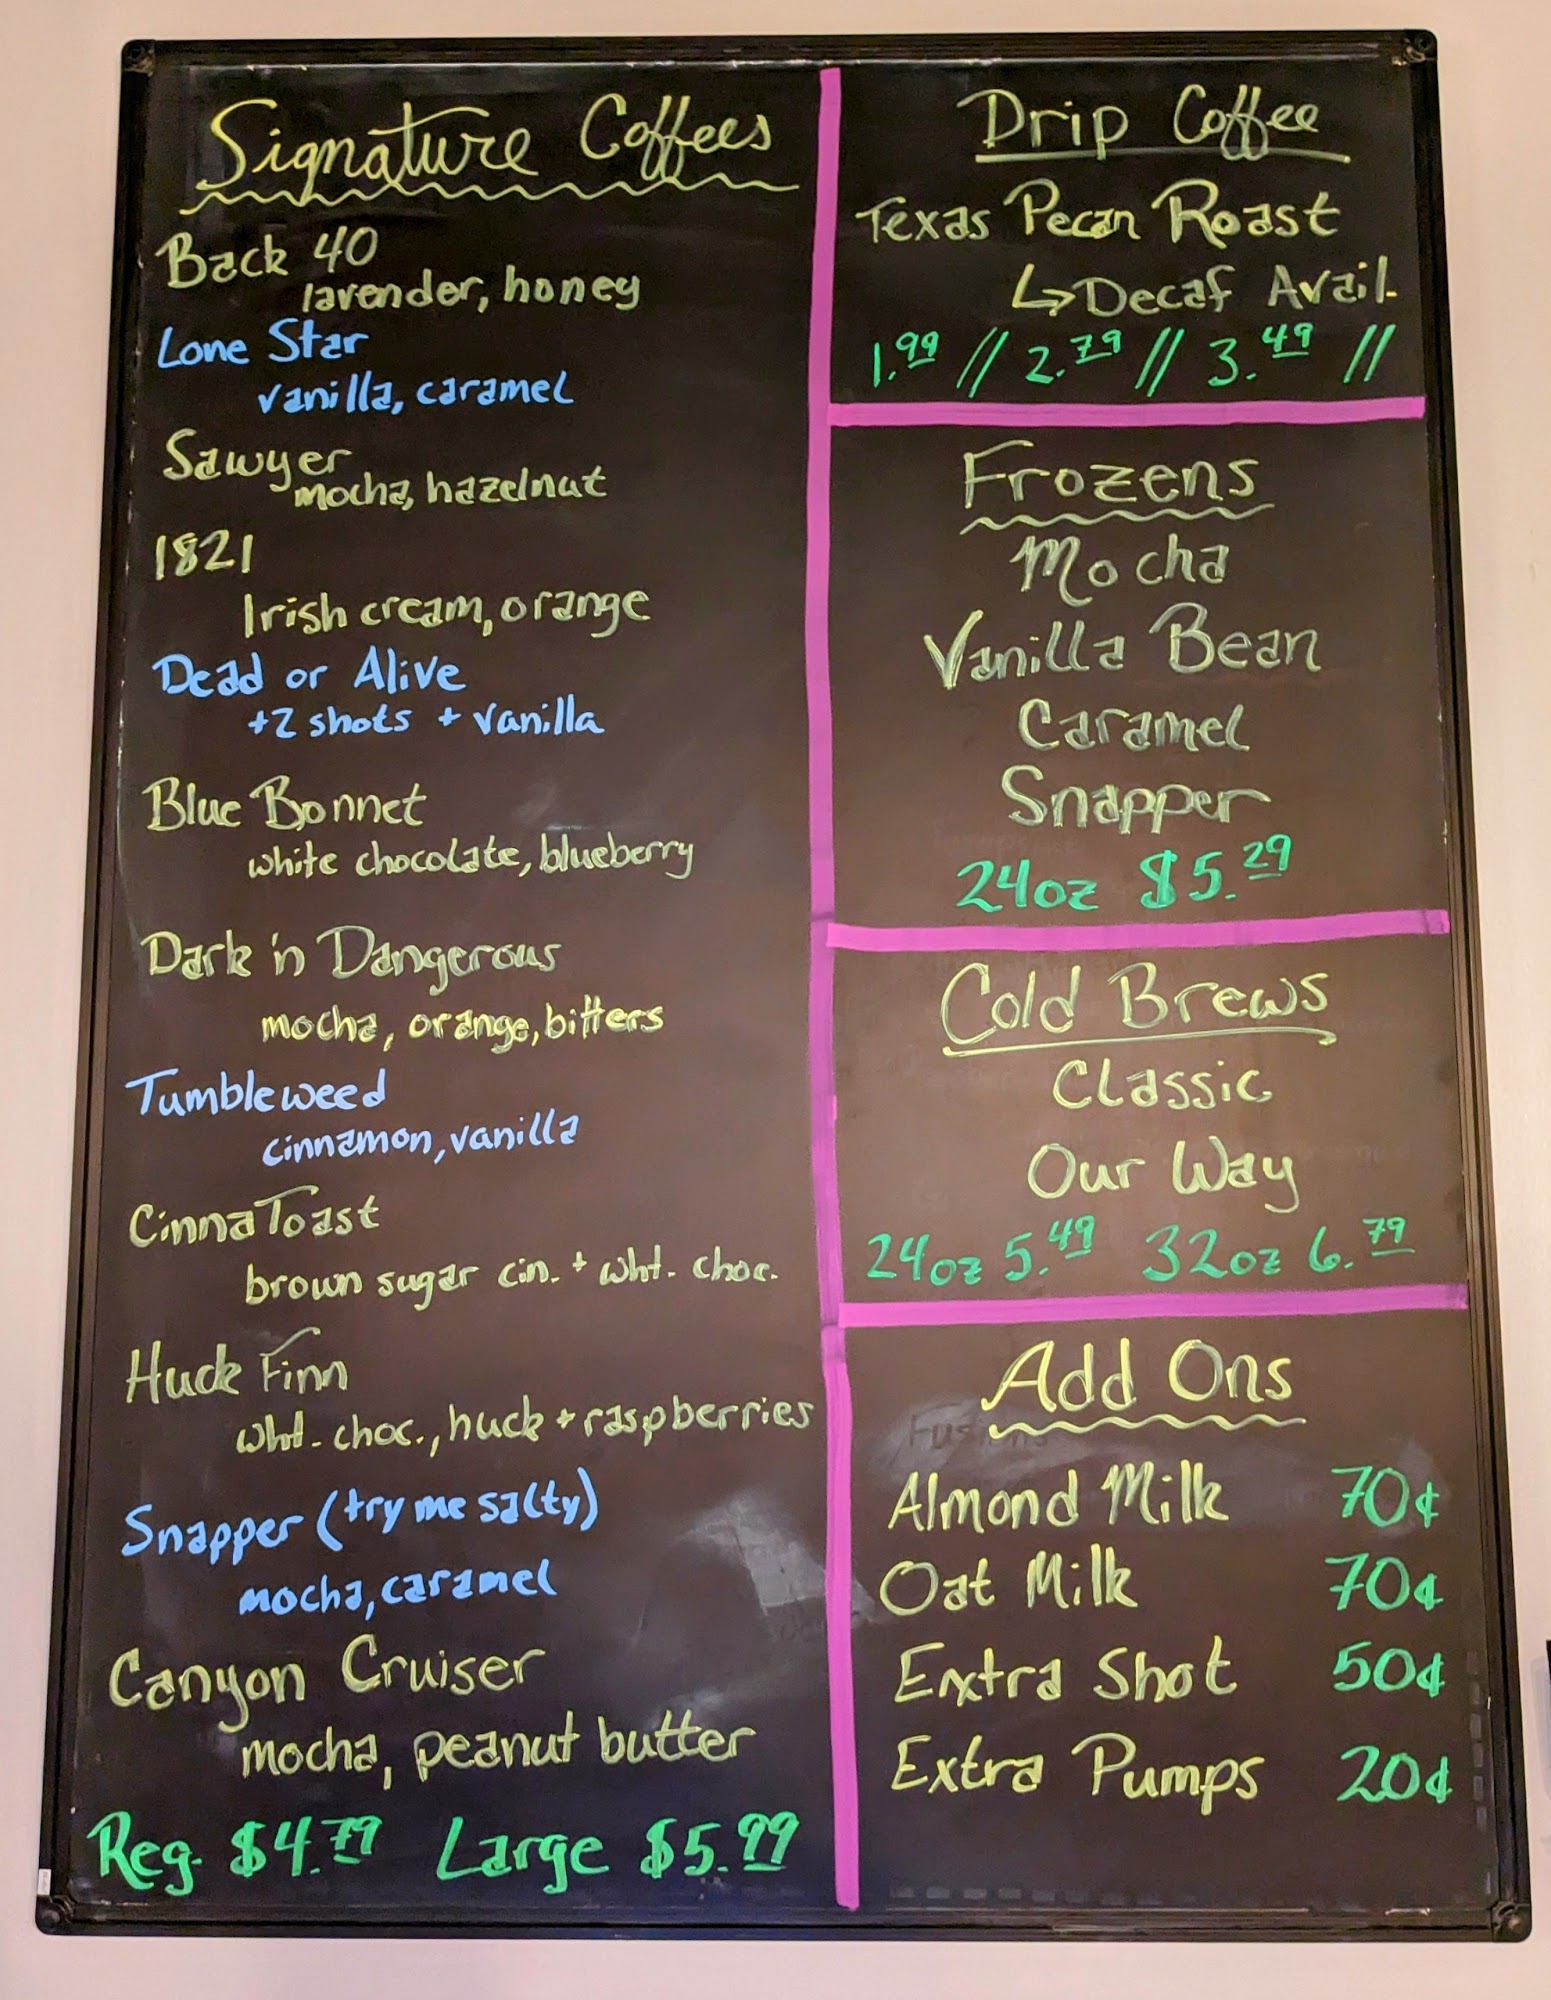 Signature Coffees
Back 40
lavender, honey
Lone Star
vanilla, caramel
Sawyer
mocha, hazelnut
1821
Irish cream, orange
Dead or Alive
+2 shots + vanilla
Blue Bonnet
white chocolate, blueberry
Dark 'n Dangerous
mocha, orange, bitters
Tumbleweed
cinnamon, vanilla
CinnaToast
brown sugar cin. + wht. choc.
Huck Finn
wht. choc., huck + raspberries
Snapper (try me salty)
mocha, caramel
Canyon Cruiser
mocha, peanut butter
Reg. $4.79 Large $5.99
Drip Coffee
Texas Pecan Roast
↳Decaf Avail.
1.99 // 2.79 // 3.49 //
Frozens
Mocha
Vanilla Bean
Caramel
Snapper
24oz $5.29
Cold Brews
Classic
Our Way
24oz 5.49 32oz 6.79
Add Ons
Almond Milk 70¢
Oat Milk 70¢
Extra Shot 50¢
Extra Pumps 20¢